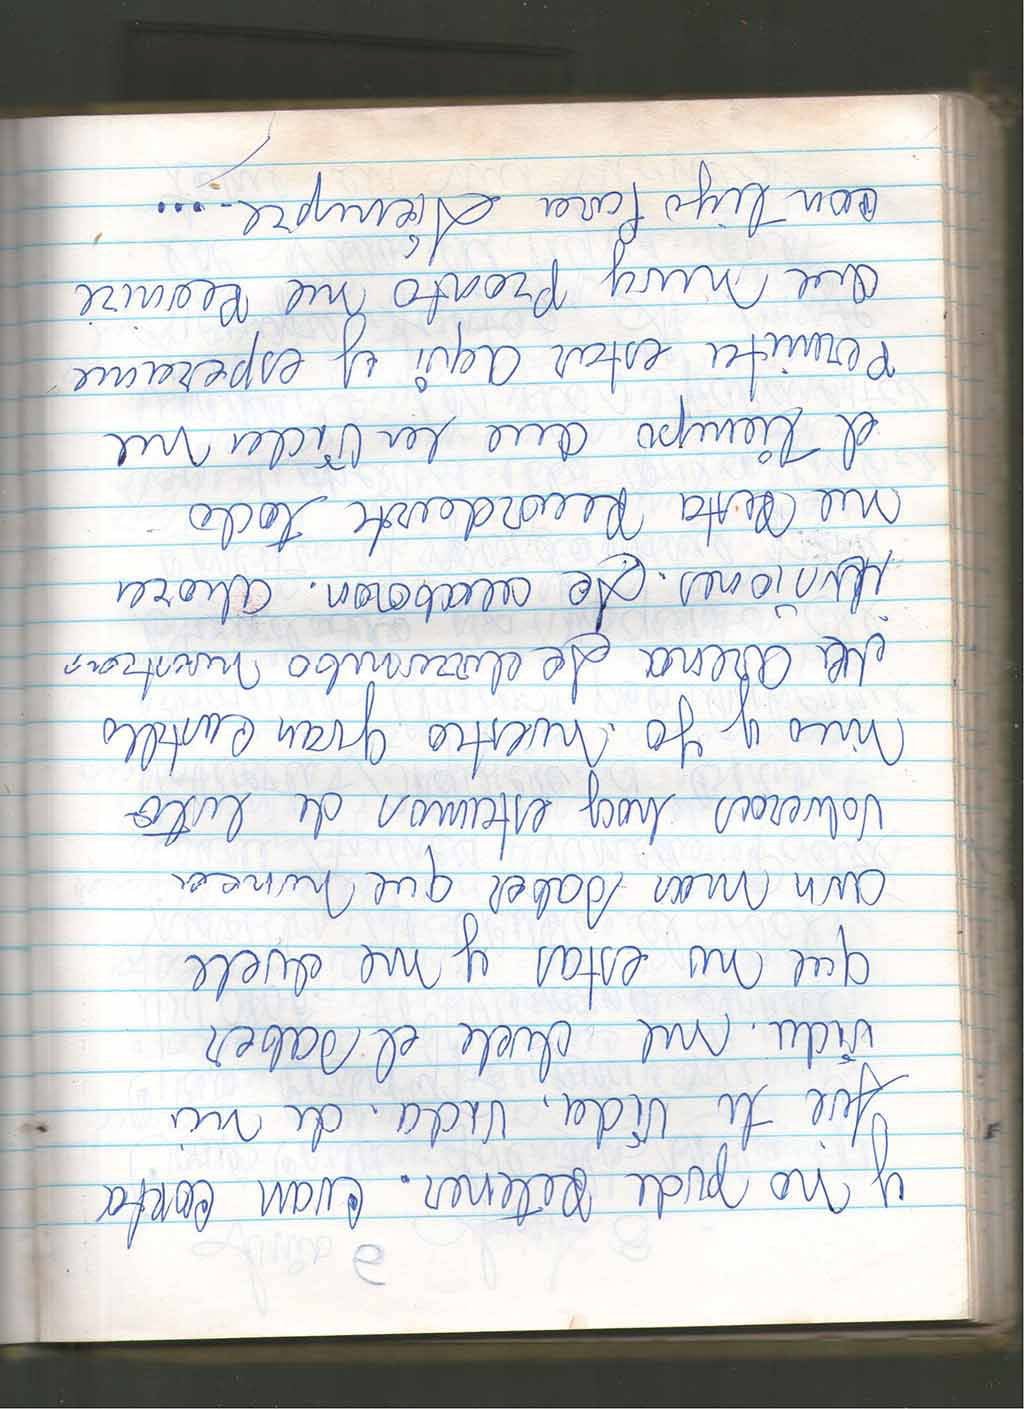 y no pude Retener. Cuan Corta
fue tu vida, vida. de mi
vida. me duele el saber
que no estas y me duele
aun mas saber que nunca
volveras hoy estamos de luto
Mico y yo. Nuestro gran Castillo
de Arena se derrumbo Nuestras
ilusiones. Se acabaron. Ahora
me Resta Recordarte todo
el tiempo que la vida me
Permita estar aqui y esperame
que muy Pronto me Reunire
con tigo Para Siempre....